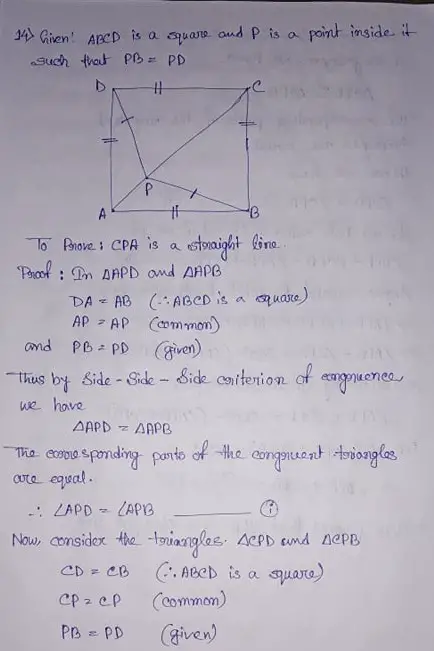 14) Given: ABCD is a square and P is a point inside it
such that PB = PD
D
C
P
A
B
To Prove: CPA is a straight line.
Proof: In ΔAPD and ΔAPB
DA = AB (∴ ABCD is a square)
AP = AP (common)
and PB = PD (given)
Thus by Side-Side-Side criterion of congruence,
we have
ΔAPD = ΔAPB
The corresponding parts of the congruent triangles
are equal.
∴ ∠APD = ∠APB ______ (i)
Now, consider the triangles. ΔCPD and ΔCPB
CD = CB (∴ ABCD is a square)
CP = CP (common)
PB = PD (given)